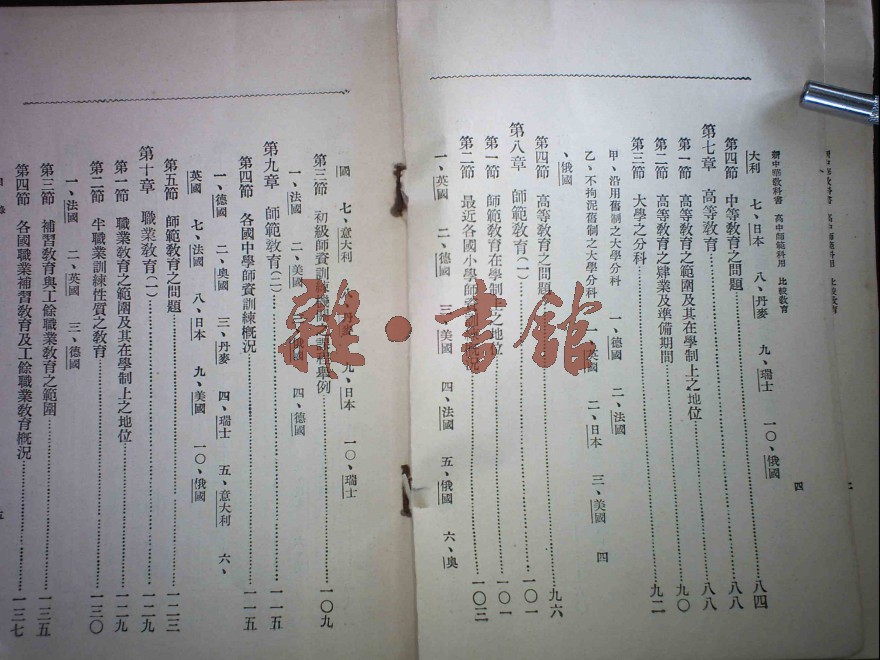 新中華教科書 高中師範科用 比較教育 二
新中華教科書 高中師範科用 比較教育 四
大利 七、日本 八、丹麥 九、瑞士 一〇、俄國
第四節 中等教育之問題……八四
第七章 高等教育……八八
第一節 高等教育之範圍及其在學制上之地位……八八
第二節 高等教育之肄業及準備期間……九〇
第三節 大學之分科……九二
甲、沿用舊制之大學分科 一、德國 二、法國
乙、不拘泥舊制之大學分科 一、英國 二、日本 三、美國 四
、俄國
第四節 高等教育之問題……九六
第八章 師範教育(一)……一〇一
第一節 師範教育在學制上之地位……一〇一
第二節 最近各國小學師資訓練概況……一〇三
一、英國 二、德國 三、美國 四、法國 五、俄國 六、奧
國 七、意大利 九、日本 一〇、瑞士
第三節 初級師資訓練 課程舉例……一〇九
一、法國 二、美國 三、俄國 四、德國
第九章 師範教育(二)……一一五
第四節 各國中學師資訓練概況……一一五
一、德國 二、奧國 三、丹麥 四、瑞士 五、意大利 六、
英國 七、法國 八、日本 九、美國 一〇、俄國
第五節 師範教育之問題……一二三
第十章 職業教育(一)……一二九
第一節 職業教育之範圍及其在學制上之地位……一二九
第二節 半職業訓練性質之教育……一三〇
一、法國 二、英國 三、德國
第三節 補習教育與工餘職業教育之範圍……一三五
第四節 各國職業補習教育及工餘職業教育概況……一三七
目錄 五
雜·書館